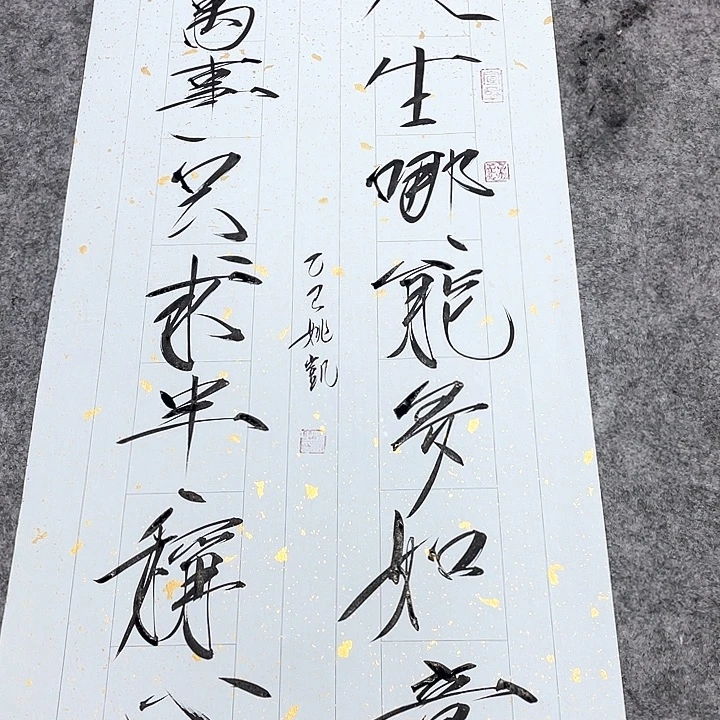 人生哪能多如意
萬事只求半稱心
乙巳姚凱